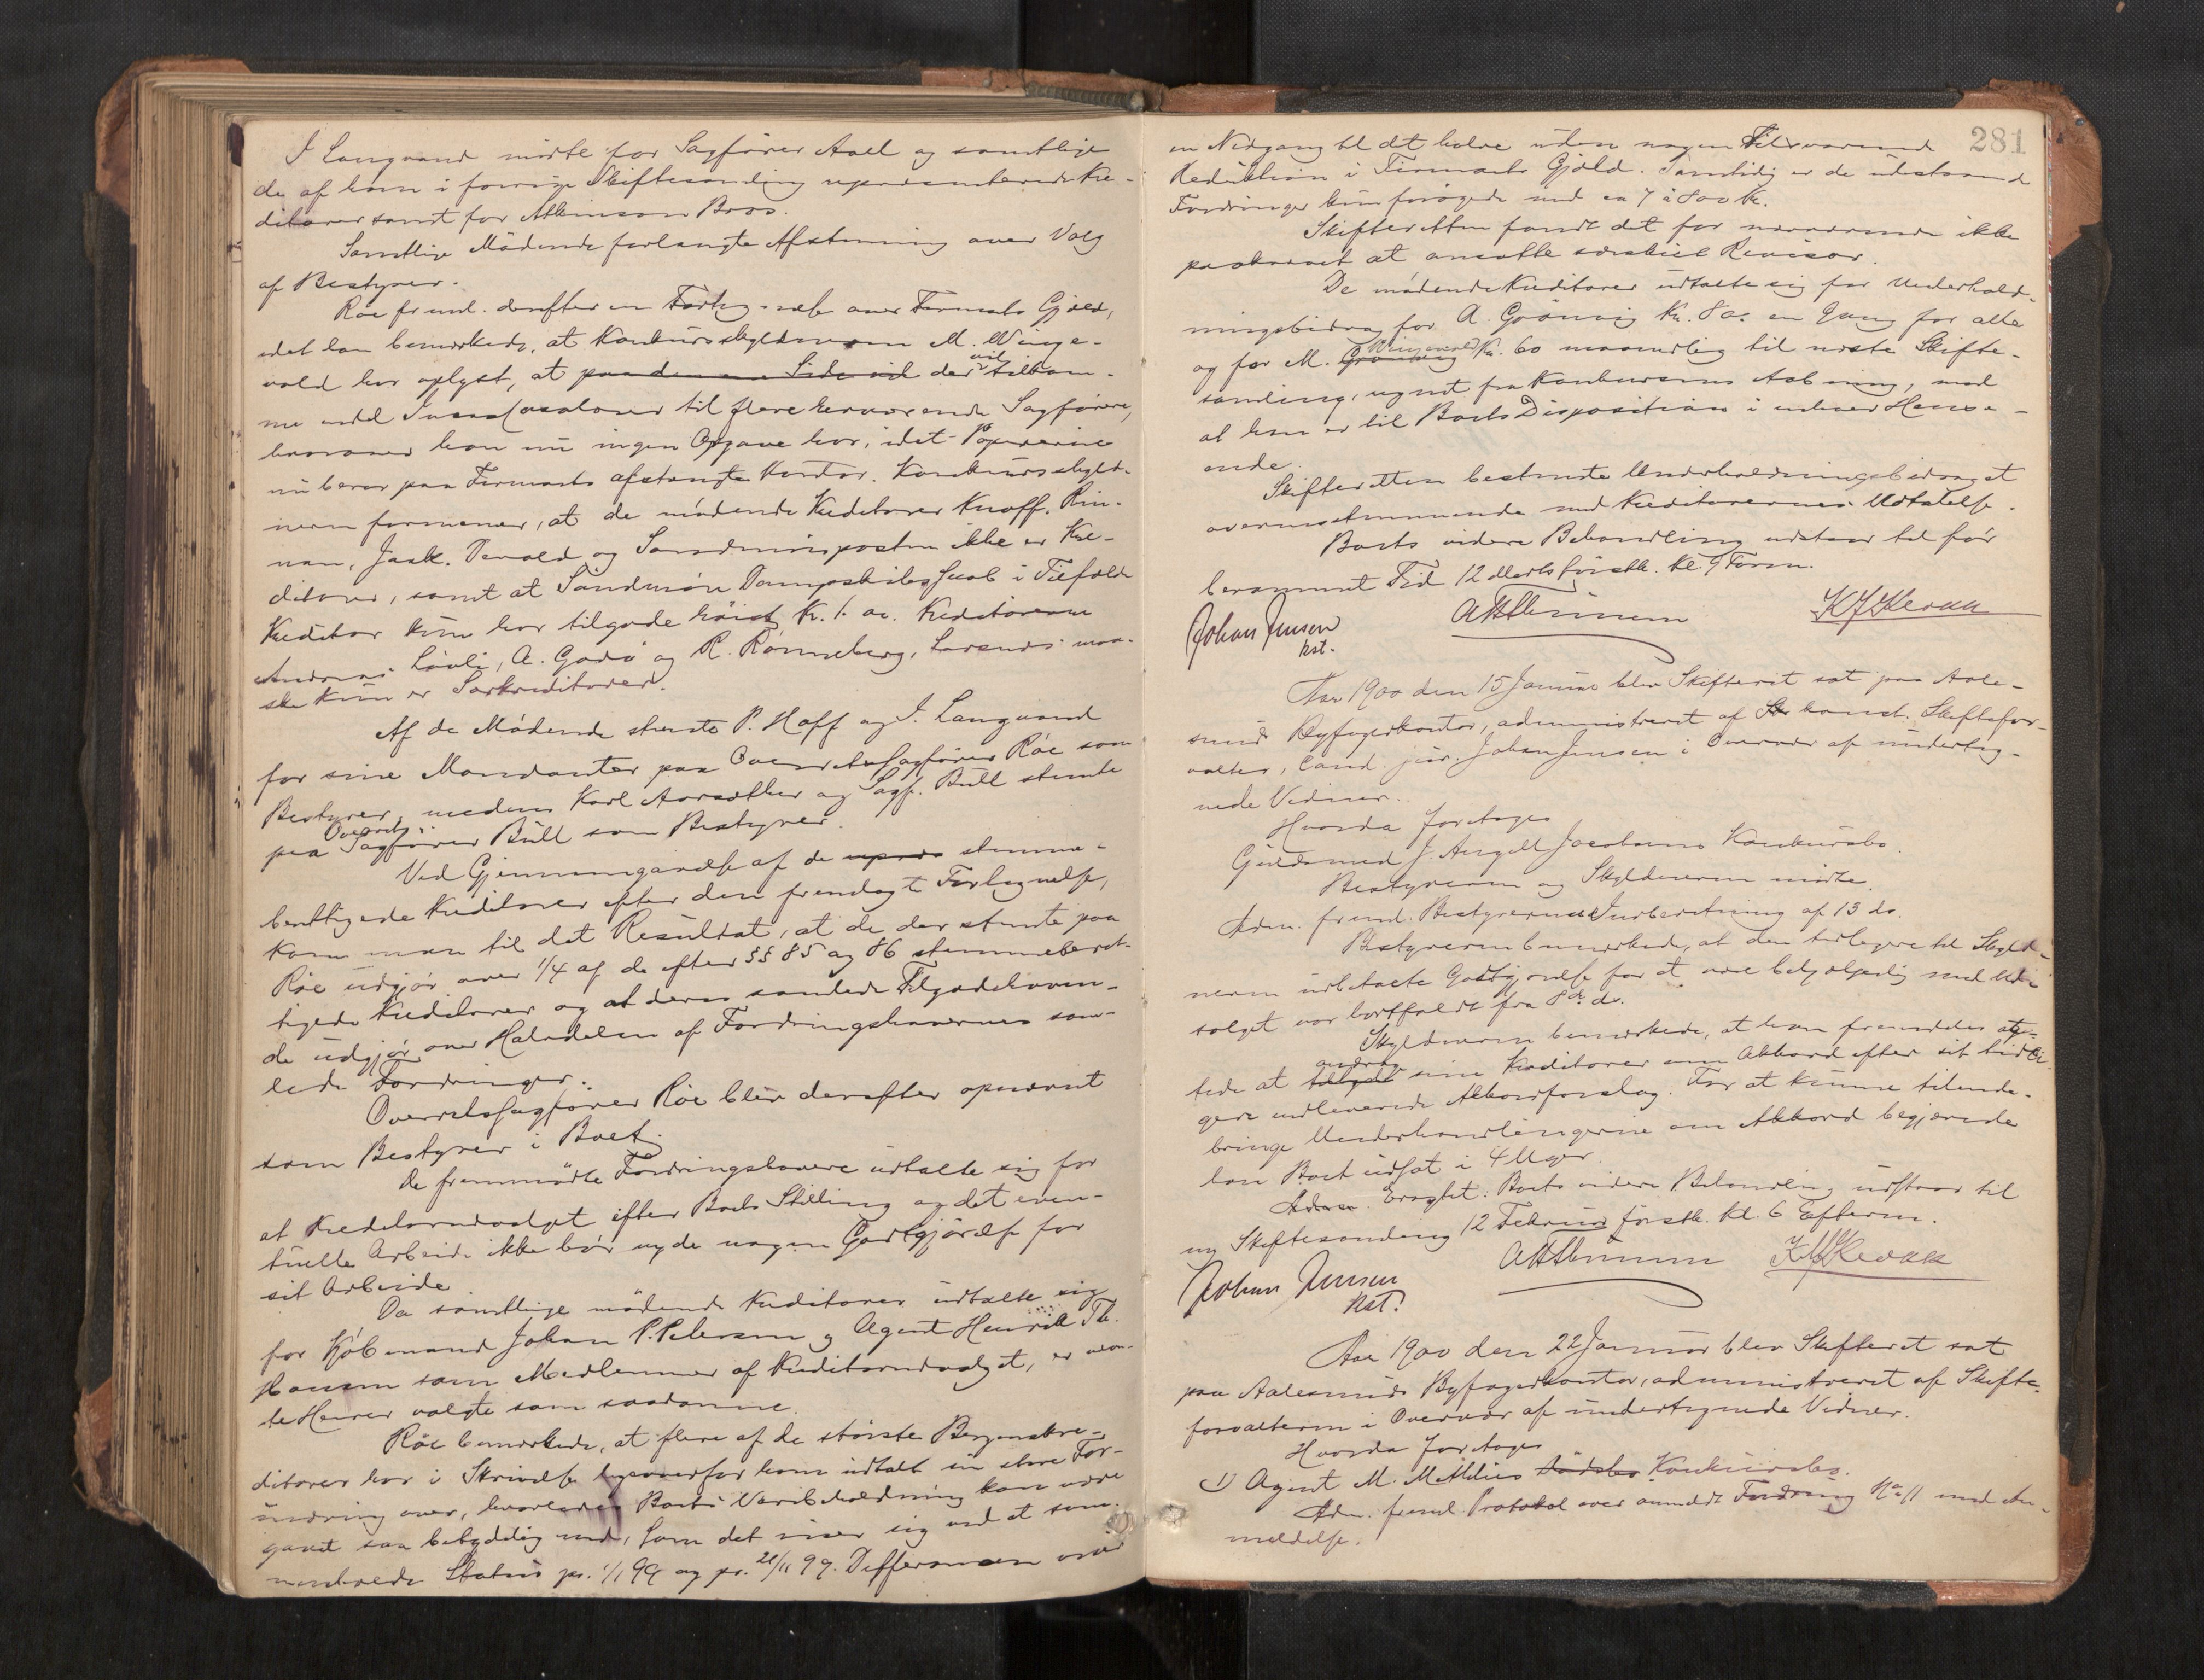 I Langvand mödte for Sagförer Aall og samtlige
de af ham i forrige Skiftesamling repræsenterede Kre-
ditorer samt for Atkinson Bros.
Samtlige Mödende forlangte Afstemning over Valg
af Bestyrer.
Röe freml. derefter en Fortegnelse over Firmaets Gjæld,
idet han bemærkede, at Konkursskyldneren M. Winge-
vold har oplyst, at paa den ene Side vil der vil tilkom-
me endel Incassosalærer til flere herværende Sagförere,
hvorover han nu ingen Opgave har, idet Papirerne
nu beror paa Firmaets afstængte Kontor. Konkursskyld-
neren formener, at de mödende Kreditorer Knoff, Rin-
nan, Jack. Devold og Söndmörsposten ikke er Kre-
ditorer, samt at Söndmöre Dampskibsselskab i Tilfælde
Kreditor kun har tilgode höist Kr. 1. oc. Kreditorerne
Andreas Lövli, A. Godö og R. Rönneberg, Larsnes maa-
ske kun er Særkreditorer.
Af de Mödende stemte P. Hoff og I. Langvand
for sine Mandanter paa Overretssagförer Röe som
Bestyrer, medens Karl Aarsæther og Sagf. Bull stemte
paa Overrets-Sagförer Bull som Bestyrer.
Ved Gjennemgaaelse af de stemme-
berettigede Kreditorer efter den fremlagte Fortegnelse,
kom man til det Resultat, at de der stemte paa
Röe udgjör over 1/4 af de efter §§ 85 og 86 stemmeberet-
tigede Kreditorer og at deres samlede Tilgodehaven-
de udgjör over Halvdelen af Fordringshavernes sam-
lede Fordringer.
Overretssagförer Röe blev derefter opnævnt
som Bestyrer i Boet.
De fremmödte Fordringshavere udtalte sig for
at Kreditorudvalget efter Boets Stilling og det even-
tuelle Arbeide ikke bör nyde nogen Godtgjörelse for
sit Arbeide
Da samtlige mödende Kreditorer udtalte sig
for Kjöbmand Johan P. Petersen og Agent Henrik Th.
Hansen som Medlemmer af Kreditorudvalget, er næv-
te Herrer valgte som saadanne.
Röe bemærkede, at flere af de störste Bergenskre-
ditorer har i Skrivelse ligeoverfor ham udtalt sin store For-
undring over, hvorledes Boets Varebeholdning kan være
gaaet saa betydelig ned, som det viser sig ved at sam-
menholde Status pr. 1/1 99 og pr. 20/11 99. Differensen viser
281
en Nedgang til det halve uden nogen Tilsvarende
Reduktion i Firmaets Gjæld. Samtidig er de udestaaende
Fordringer kun forögede med ca 7 à 800 Kr.
Skifteretten fandt det for nærværende ikke
paakrævet at ansætte særskilt Revisor.
De mödende Kreditorer udtalte sig for Underhold-
ningsbidrag for A. Grönvig Kr. 80. en Gang for alle
og for M. Grönvig Wingevold Kr. 60 maanedlig til næste Skifte-
samling, regnet fra Konkursens Aabning, mod
at han er til Boets Disposition i enhver Hense-
ende.
Skifteretten bestemte Underholdningsbidraget
overensstemmende med Kreditorernes Udtalelse.
Boets videre Behandling udstaar til för
berammet Tid 12 Marts förstk. kl. 9 Form.
Johan Jensen
kst.
Aar 1900 den 15 Januar blev Skifteret sat paa Aale-
sunds Byfogedkontor, administreret af konst. Skiftefor-
valter, cand. jur. Johan Jensen i Overvær af underteg-
nede Vidner.
Hvorda foretages
Guldsmed J. Angell Jacobsens Konkursbo.
Bestyreren og Skyldneren mödte.
Adm. freml. Bestyrerens Indberetning af 13 ds.
Bestyreren bemærkede, at den tidligere til Skyld-
neren udbetalte Godtgjörelse for at være behjælpelig med Ud-
salget var bortfaldt fra 8de ds.
Skyldneren bemærkede, at han fremdeles agt-
tede at tilbyde andrage sine Kreditorer om Akkord efter sit tidli-
gere indleverede Akkordforslag. For at kunne tilende-
bringe Underhandlingerne om Akkord begjærede
han Boet udsat i 4 Uger.
Adm. Eragtet: Boets videre Behandling udstaar til
ny Skiftesamling 12 Februar förstk. kl. 6 Efterm.
Johan Jensen
kst.
Aar 1900 den 22 Januar blev Skifteret sat
paa Aalesunds Byfogedkontor, administreret af Skifte-
forvalteren i Overvær af undertegnede Vidner.
Hvorda foretages
1) Agent M. Mittlies Dödsbo Konkursbo.
Adm. freml. Protokol over anmeldt Fordring No 11 med An-
meldelse.